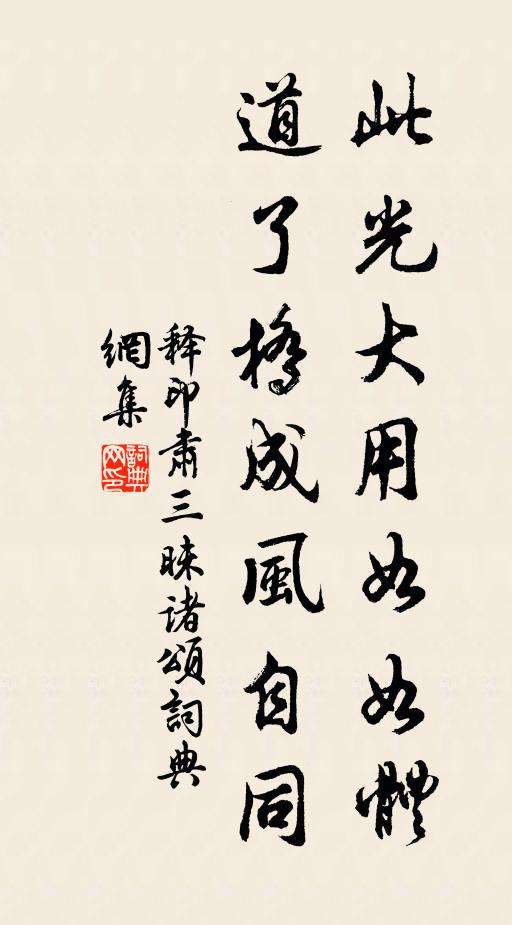 此光大用如如體
道了橋成風自同
释印肅三昧诸頌詞典
網集
詞典網印